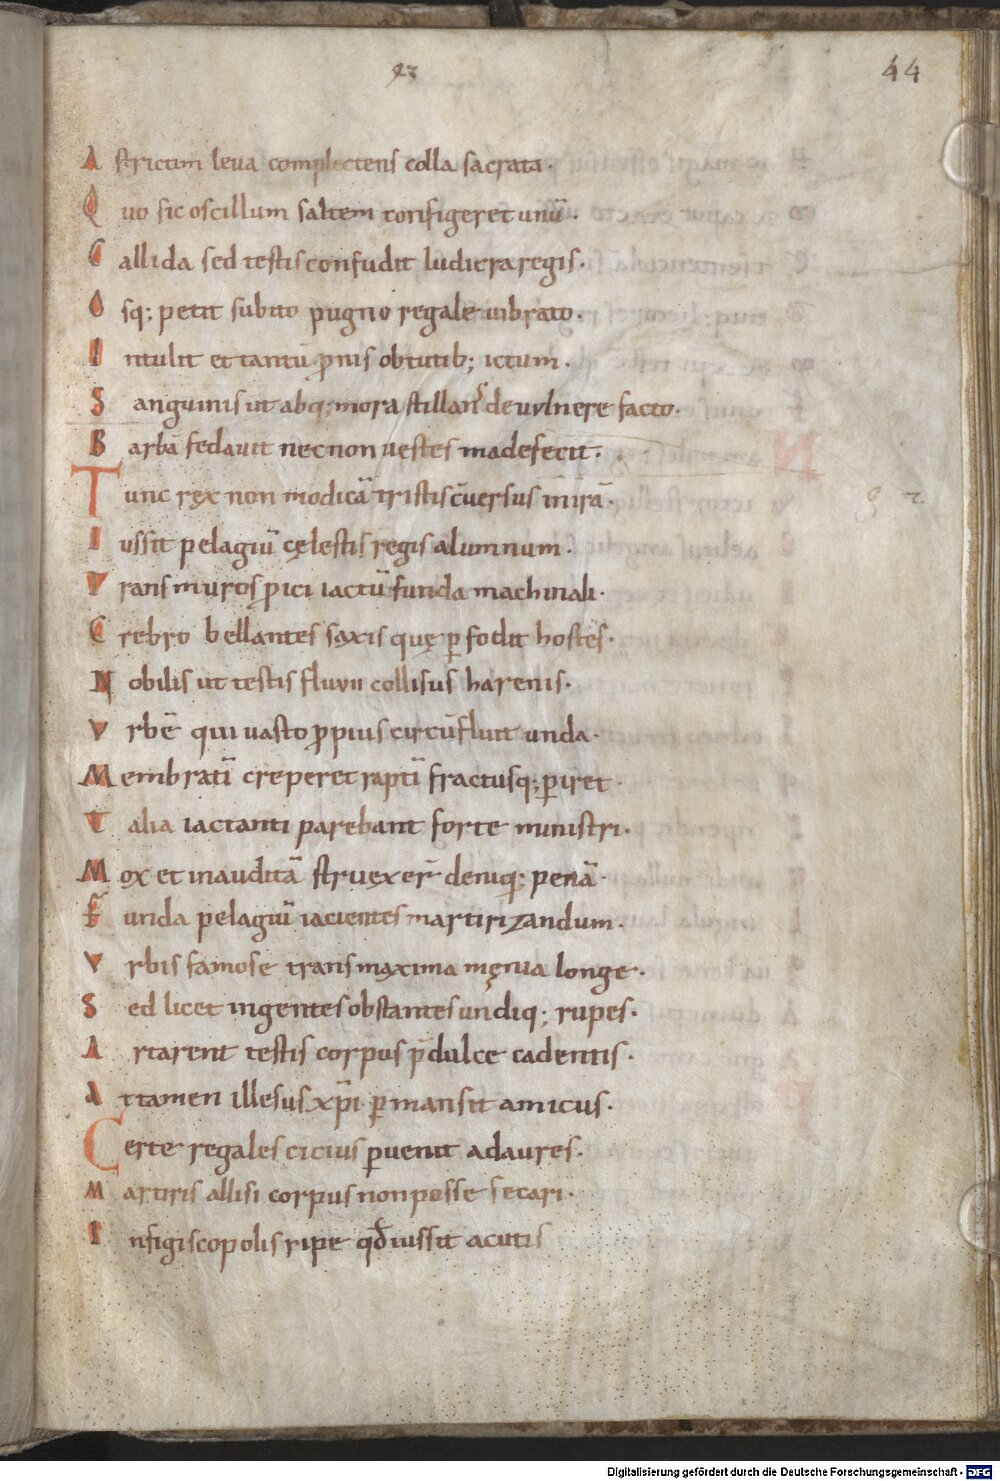 43
44
A strictim leua complectens colla sacrata·
Q uo sic oscillum saltem configeret unū·
C allida sed testis confudit ludicra regis·
O sq; petit subito pugno regale uibrato·
I ntulit et tantū p̄nis obtutib; ictum·
S anguinis ut absq; mora stillans de uulnere facto·
B arbā fedauit necnon uestes madefecit·
T unc rex non modicā tristis c̄uersus in irā·
I ussit pelagiū cęlestis regis alumnum·
T rans muros p̄ici iactū funda machinali·
C rebro bellantes saxis quę ꝑfodit hostes·
N obilis ut testis fluuii collisus harenis·
V rbē qui uasto ꝓpius circūfluit unda·
M embratī creperet raptī fractusq; ꝑiret·
T alia iactanti parebant forte ministri·
M ox et inauditā struxer̄ deniq; penā·
F unda pelagiū iacientes martirizandum·
V rbis famose trans maxima męnia longe·
S ed licet ingentes obstantes undiq; rupes·
A rtarent testis corpus p̄dulce cadentis·
A ttamen illesus xp̄i ꝑmansit amicus·
C erte regales cicius ꝑuenit ad aures·
M artiris allisi corpus non posse secari·
I nfigi scopolis ripe qđ iussit acutis
Digitalisierung gefördert durch die Deutsche Forschungsgemeinschaft - DFG